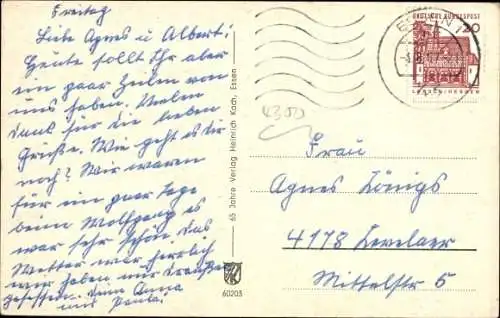 Freitag
Liebe Agnes u Albert!
Heute sollt Ihr aber
ein paar Zeilen von
uns haben. Vielen
Dank für die lieben
Grüße. Wie geht es dir
noch? Wir waren
für ein paar Tage
beim Wolfgang es
war sehr schön das
Wetter war herrlich
wir haben nur draußen
gesessen. Anna
und Paula
65 Jahre Verlag Heinrich Koch, Essen
60203
DEUTSCHE BUNDESPOST
20
ESSEN
4300
Frau
Agnes Königs
4178 Kevelaer
Mittelstr 5